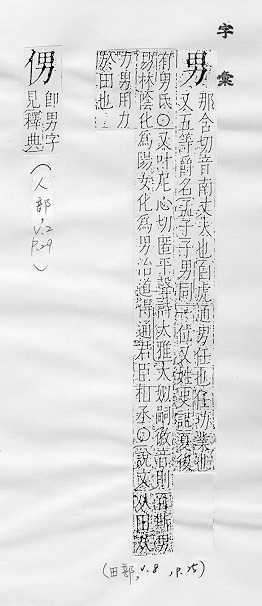 字彙
男
那含切音南丈夫也白虎通男任也任功業也
又五等爵名孟子子男同一位又姓史記夏後
有男氏○又叶尼心切匿平聲詩大雅大姒嗣徽音則百斯男
易林陰化為陽女化為男治道得通君臣相承○說文从田从
力男用力
於田也
(田部, v.8, p.25)
侽
即男字
見釋典
(人部, v.2 p.29)